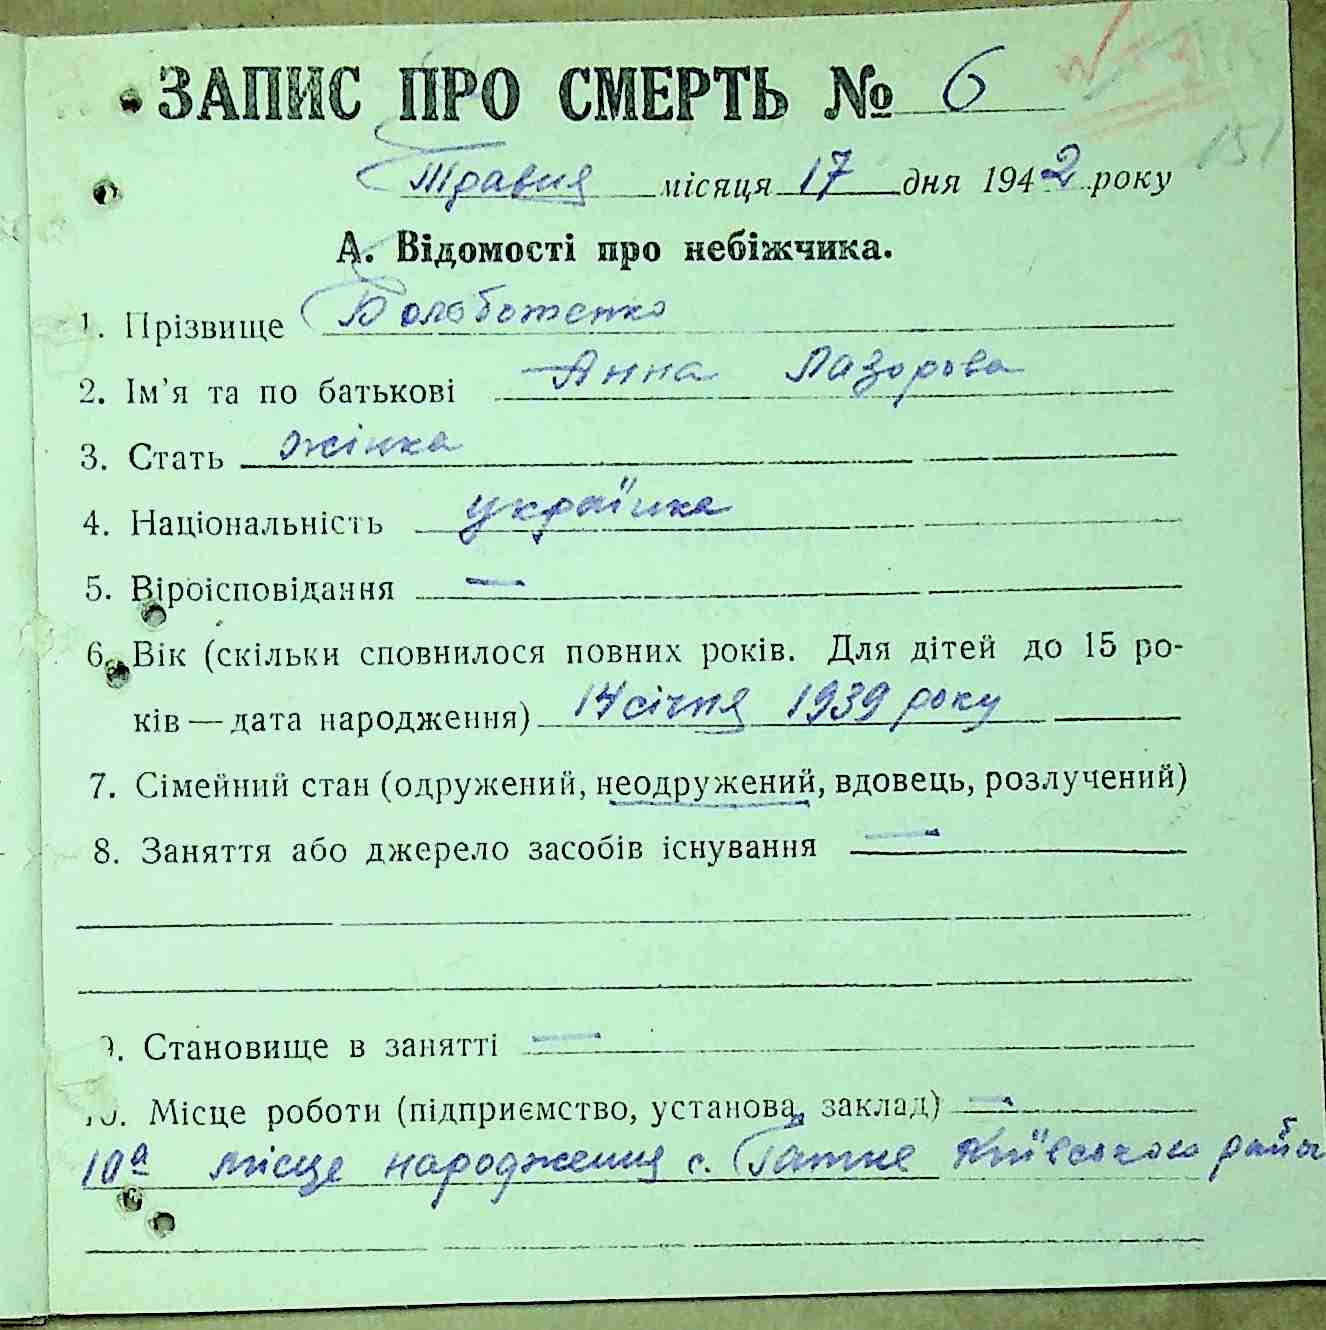 ЗАПИС ПРО СМЕРТЬ № 6
151
Травня місяця 17 дня 1942 року
А. Відомості про небіжчика.
1. Прізвище Болобоженко
2. Ім'я та по батькові Анна Лазорова
3. Стать жінка
4. Національність українка
5. Віроісповідання —
6. Вік (скільки сповнилося повних років. Для дітей до 15 ро-
ків — дата народження) 14 січня 1939 року
7. Сімейний стан (одружений, неодружений, вдовець, розлучений)
8. Заняття або джерело засобів існування —
9. Становище в занятті —
10. Місце роботи (підприємство, установа, заклад) —
10а місце народження с. Гатне Київського район